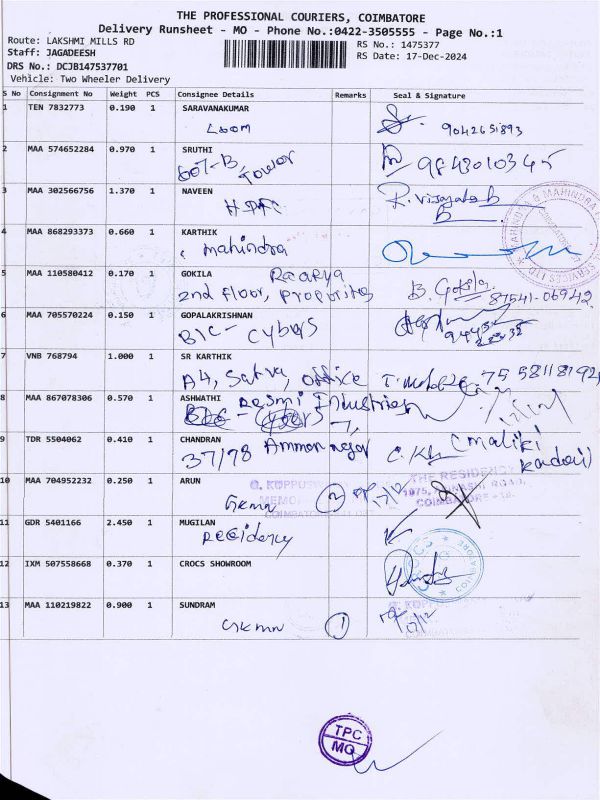 THE PROFESSIONAL COURIERS, COIMBATORE
Delivery Runsheet - MO - Phone No.:0422-3505555 - Page No.:1
Route: LAKSHMI MILLS RD
RS No.: 1475377
Staff: JAGADEESH
RS Date: 17-Dec-2024
DRS No.: DCJB147537701
Vehicle: Two Wheeler Delivery
S No Consignment No Weight PCS Consignee Details Remarks Seal & Signature
1 TEN 7832773 0.190 1 SARAVANAKUMAR
Loom 9042651893
2 MAA 574652284 0.970 1 SRUTHI
607-B, Tower 9843010345
3 MAA 302566756 1.370 1 NAVEEN
4 MAA 868293373 0.660 1 KARTHIK
Mahindra
5 MAA 110580412 0.170 1 GOKILA
2nd Floor, B. Gokila 87541-06942
6 MAA 705570224 0.150 1 GOPALAKRISHNAN
BIC- Cybers
7 VNB 768794 1.000 1 SR KARTHIK
A4, office
8 MAA 867078306 0.570 1 ASHWATHI
Resmi Industries
9 TDR 5504062 0.410 1 CHANDRAN
37/78 Amman nagar
10 MAA 704952232 0.250 1 ARUN
THE RESIDENCY
COIMBATORE
GKMN 2 17/12
11 GDR 5401166 2.450 1 MUGILAN
Residency
12 IXM 507558668 0.370 1 CROCS SHOWROOM
13 MAA 110219822 0.900 1 SUNDRAM
GKMN 1 17/12
TPC
MO